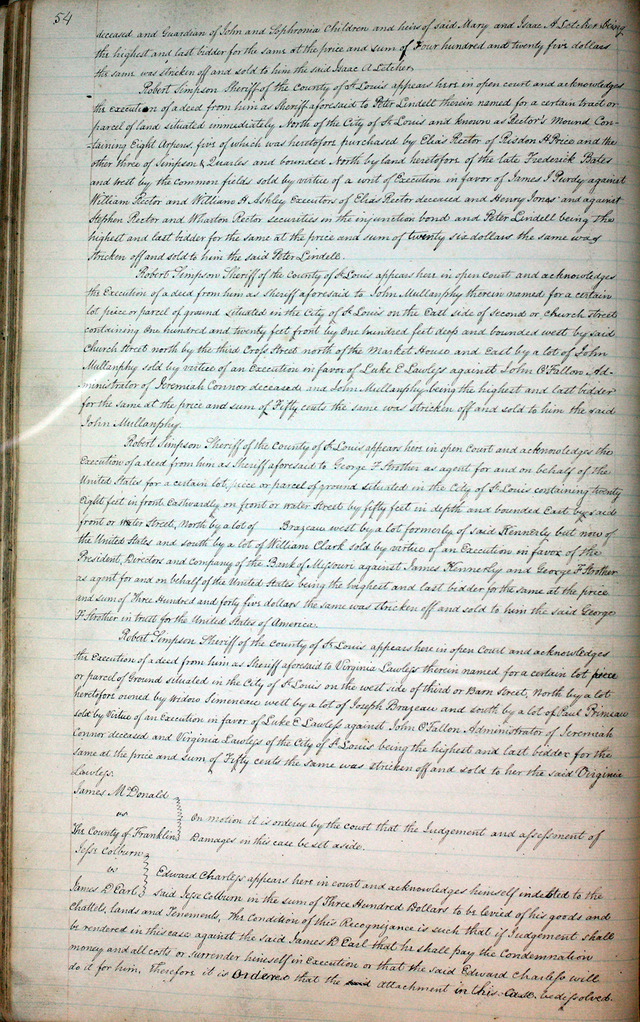 54
deceased and Guardian of John and Sophronia Children and heirs of said Mary and Isaac A Letcher being
the highest and last bidder for the same at the price and sum of Four hundred and twenty five dollars
the same was stricken off and sold to him the said Isaac A Letcher.
Robert Simpson Sheriff of the County of St Louis appears here in open court and acknowledges
the execution of a deed from him as Sheriff aforesaid to Peter Lindell therein named for a certain tract or
parcel of land situated immediately North of the City of St Louis and known as Rector's Mound Con-
taining Eight Arpens, five of which was heretofore purchased by Elias Rector of Risdon H Price and the
other three of Simpson & Quarles and bounded North by land heretofore of the late Frederick Bates
and west by the common fields sold by virtue of a writ of Execution in favor of James J Purdy against
William Rector and William H. Ashley Executors of Elias Rector deceased and Henry Jones and against
Stephen Rector and Wharton Rector securities in the injunction bond and Peter Lindell being the
highest and last bidder for the same at the price and sum of twenty six dollars the same was
stricken off and sold to him the said Peter Lindell.
Robert Simpson Sheriff of the County of St Louis appears here in open court and acknowledges
the Execution of a deed from him as Sheriff aforesaid to John Mullanphy therein named for a certain
lot piece or parcel of ground situated in the City of St Louis on the East side of second or church street
containing One hundred and twenty feet front by One hundred feet deep and bounded west by said
Church Street north by the third Cross Street north of the Market House and East by a lot of John
Mullanphy sold by virtue of an Execution in favor of Luke E Lawless against John O'Fallon Ad-
ministrator of Jeremiah Connor deceased and John Mullanphy being the highest and last bidder
for the same at the price and sum of Fifty cents the same was stricken off and sold to him the said
John Mullanphy.
Robert Simpson Sheriff of the County of St Louis appears here in open court and acknowledges the
Execution of a deed from him as Sheriff aforesaid to George F Strother as agent for and on behalf of the
United States for a certain lot, piece or parcel of ground situated in the City of St Louis containing twenty
Eight feet in front Eastwardly on front or water Street by fifty feet in depth and bounded East by said
front or Water Street, North by a lot of Brazeau west by a lot formerly of said Kennerly but now of
the United States and south by a lot of William Clark sold by virtue of an Execution in favor of the
President, Directors and company of the Bank of Missouri against James Kennerly and George F Strother
as agent for and on behalf of the United States being the highest and last bidder for the same at the price
and sum of Three Hundred and forty five dollars the same was stricken off and sold to him the said George
F Strother in trust for the United States of America.
Robert Simpson Sheriff of the county of St Louis appears here in open Court and acknowledges
the Execution of a deed from him as Sheriff aforesaid to Virginia Lawless therein named for a certain lot piece
or parcel of Ground situated in the City of St Louis on the west side of third or Barn Street, North by a lot
heretofore owned by Widow Simeneau west by a lot of Joseph Brazeau and south by a lot of Paul Primeau
sold by Virtue of an Execution in favor of Luke E Lawless against John O'Fallon Administrator of Jeremiah
Connor deceased and Virginia Lawless of the City of St Louis being the highest and last bidder for the
same at the price and sum of Fifty cents the same was stricken off and sold to her the said Virginia
Lawless.
James McDonald
vs
The County of Franklin
On motion it is ordered by the court that the Judgement and assessment of
Damages in this case be set aside.
Jesse Colburn
vs
James R Earl
Edward Charless appears here in court and acknowledges himself indebted to the
said Jesse Colburn in the sum of Three Hundred Dollars to be levied of his goods and
Chattels, lands and Tenements, The Condition of this Recognizance is such that if Judgement shall
be rendered in this case against the said James R Earl that he shall pay the Condemnation
money and all costs or surrender himself in Execution or that the said Edward Charless will
do it for him. Therefore it is Ordered that the said attachment in this Case be dissolved.